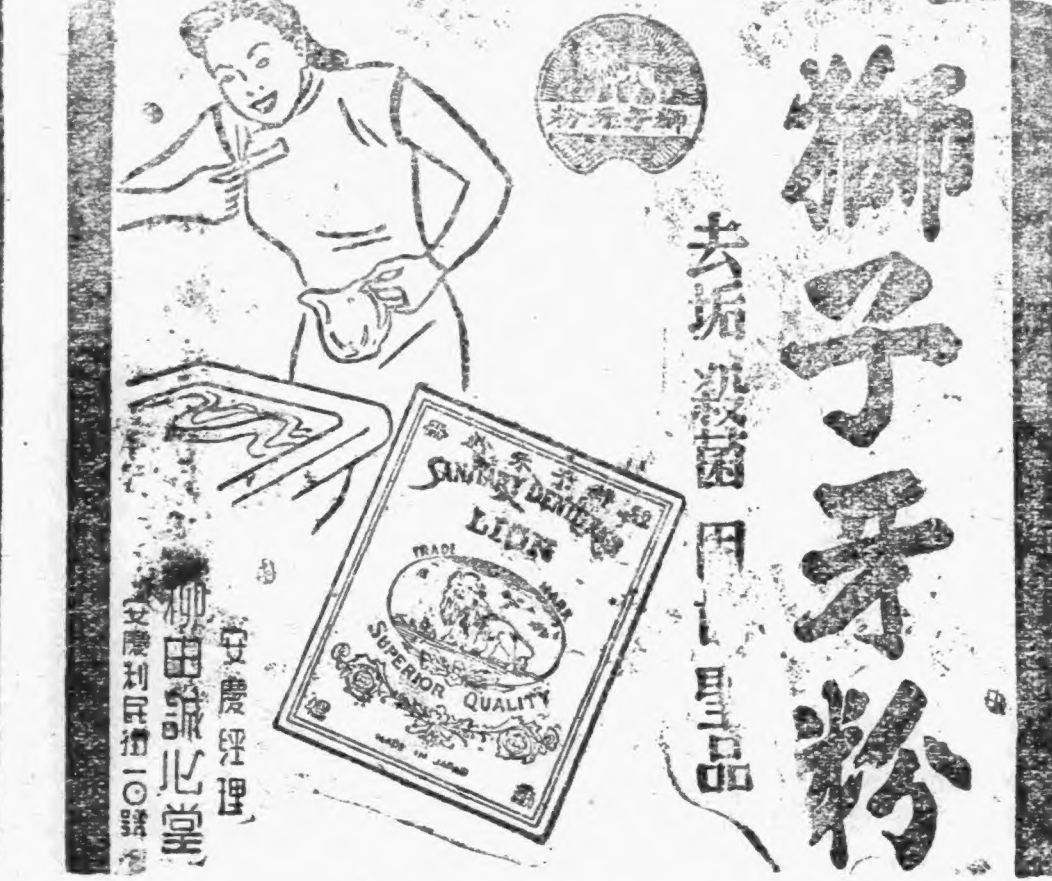 獅子牙粉
獅子牙粉
去垢殺菌
品
SANITARY DENTIFRICE
LION
TRADE MARK
SUPERIOR QUALITY
MADE IN JAPAN
安慶經理
柳田誠心堂
安慶利民街一〇號